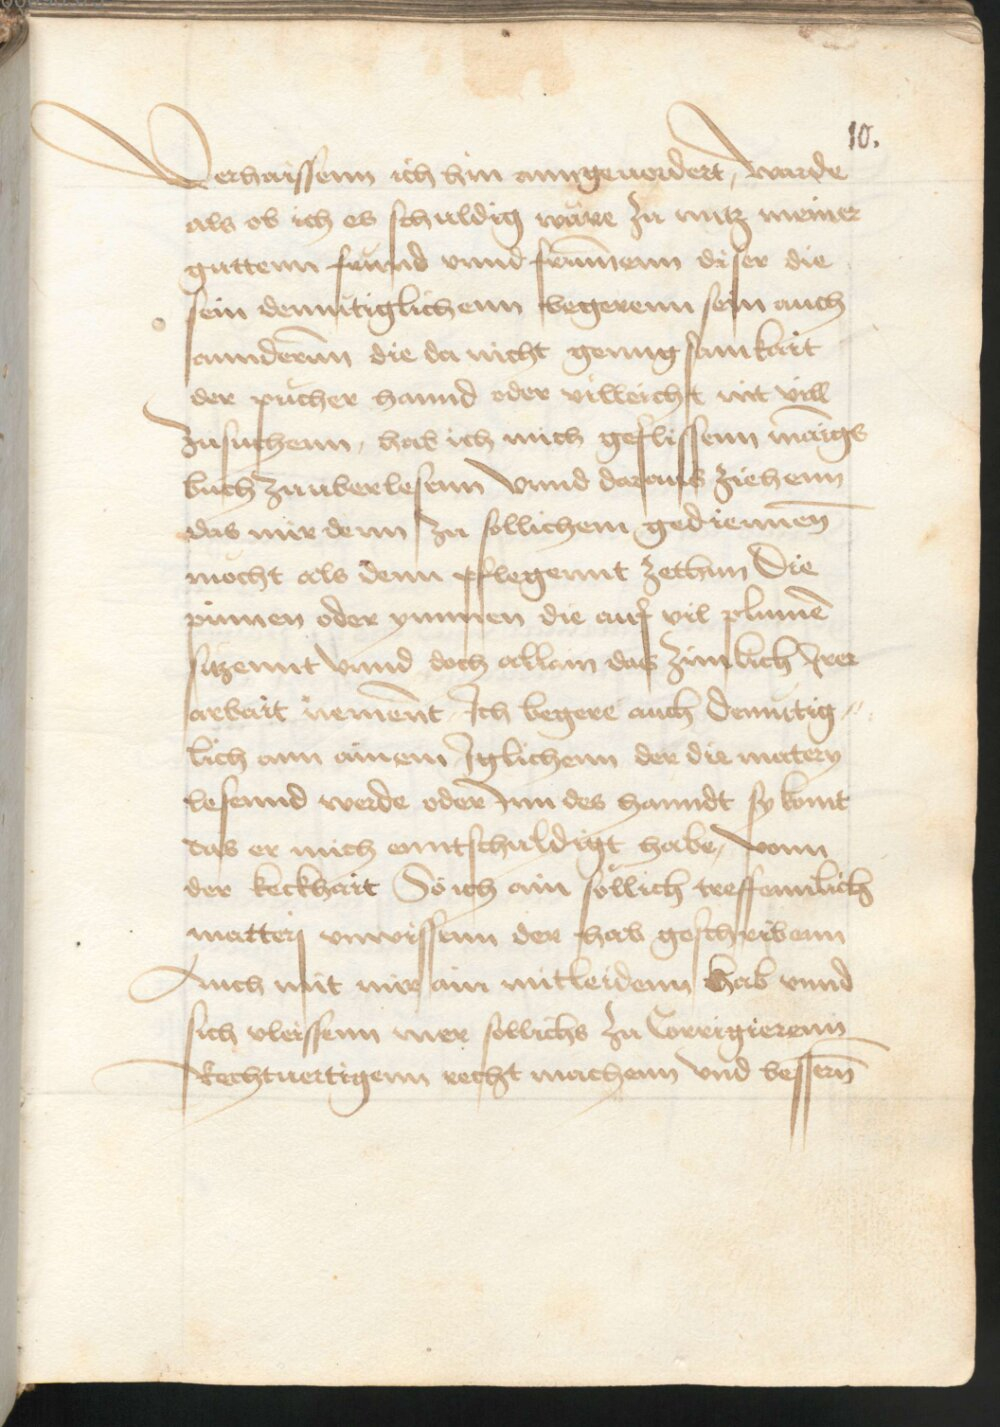 10.
Verhaissenn ich hin anngeuordert, wurde
als ob ich es schuldig wäre zu nutz meiner
guttenn frund vnnd frūmenn diser die
sein demutiglichenn begerenn sein auch
annderenn die da nicht genugsamkait
der pücher hannd oder villeicht nit vill
zusuchenn, hab ich mich geflissenn manigs
buch zuuberlesenn Vnnd daraus ziehenn
das mir denn zu sollichem gediennen
mocht als denn pflegennt zethun Die
pinnen oder ymmen die auf vil plumē
sitzennt Vnnd doch allain das zimlich Irer
arbait nement Ich begere auch demutig„
lich ann ainem Iglichenn der die matery
lesennd werde oder Inn des hanndt sy komt
das er mich enntschuldigt habe, vonn
der keckhait So ich ain söllich treffennlich
mattery vnwissenn der hab geschribenn
Auch mit mir ain mitleidenn hab vnnd
sich vleissenn mer sollichs zu Corrigierenn
Rechtuertigenn recht machenn vnd bessern